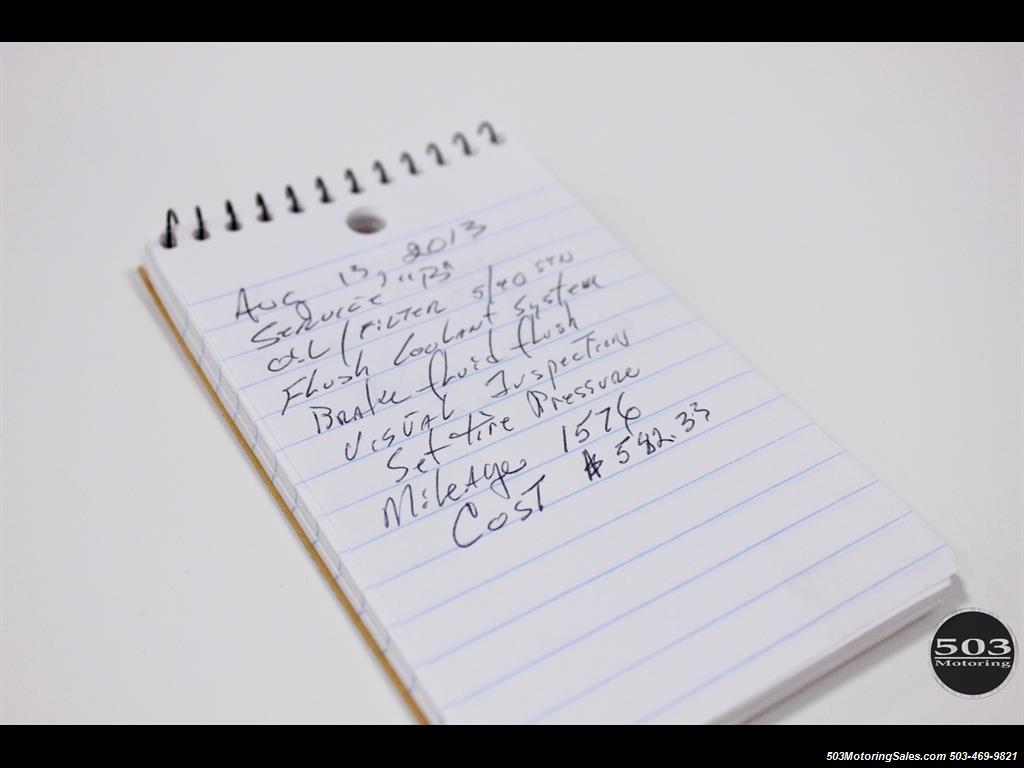 Aug 13, 2013
Service "B"
Oil/Filter 5/40 SYN
Flush Coolant System
Brake fluid flush
Visual Inspection
Set tire Pressure
Mileage 1576
Cost $582.33
503
Motoring
503MotoringSales.com 503-469-9821